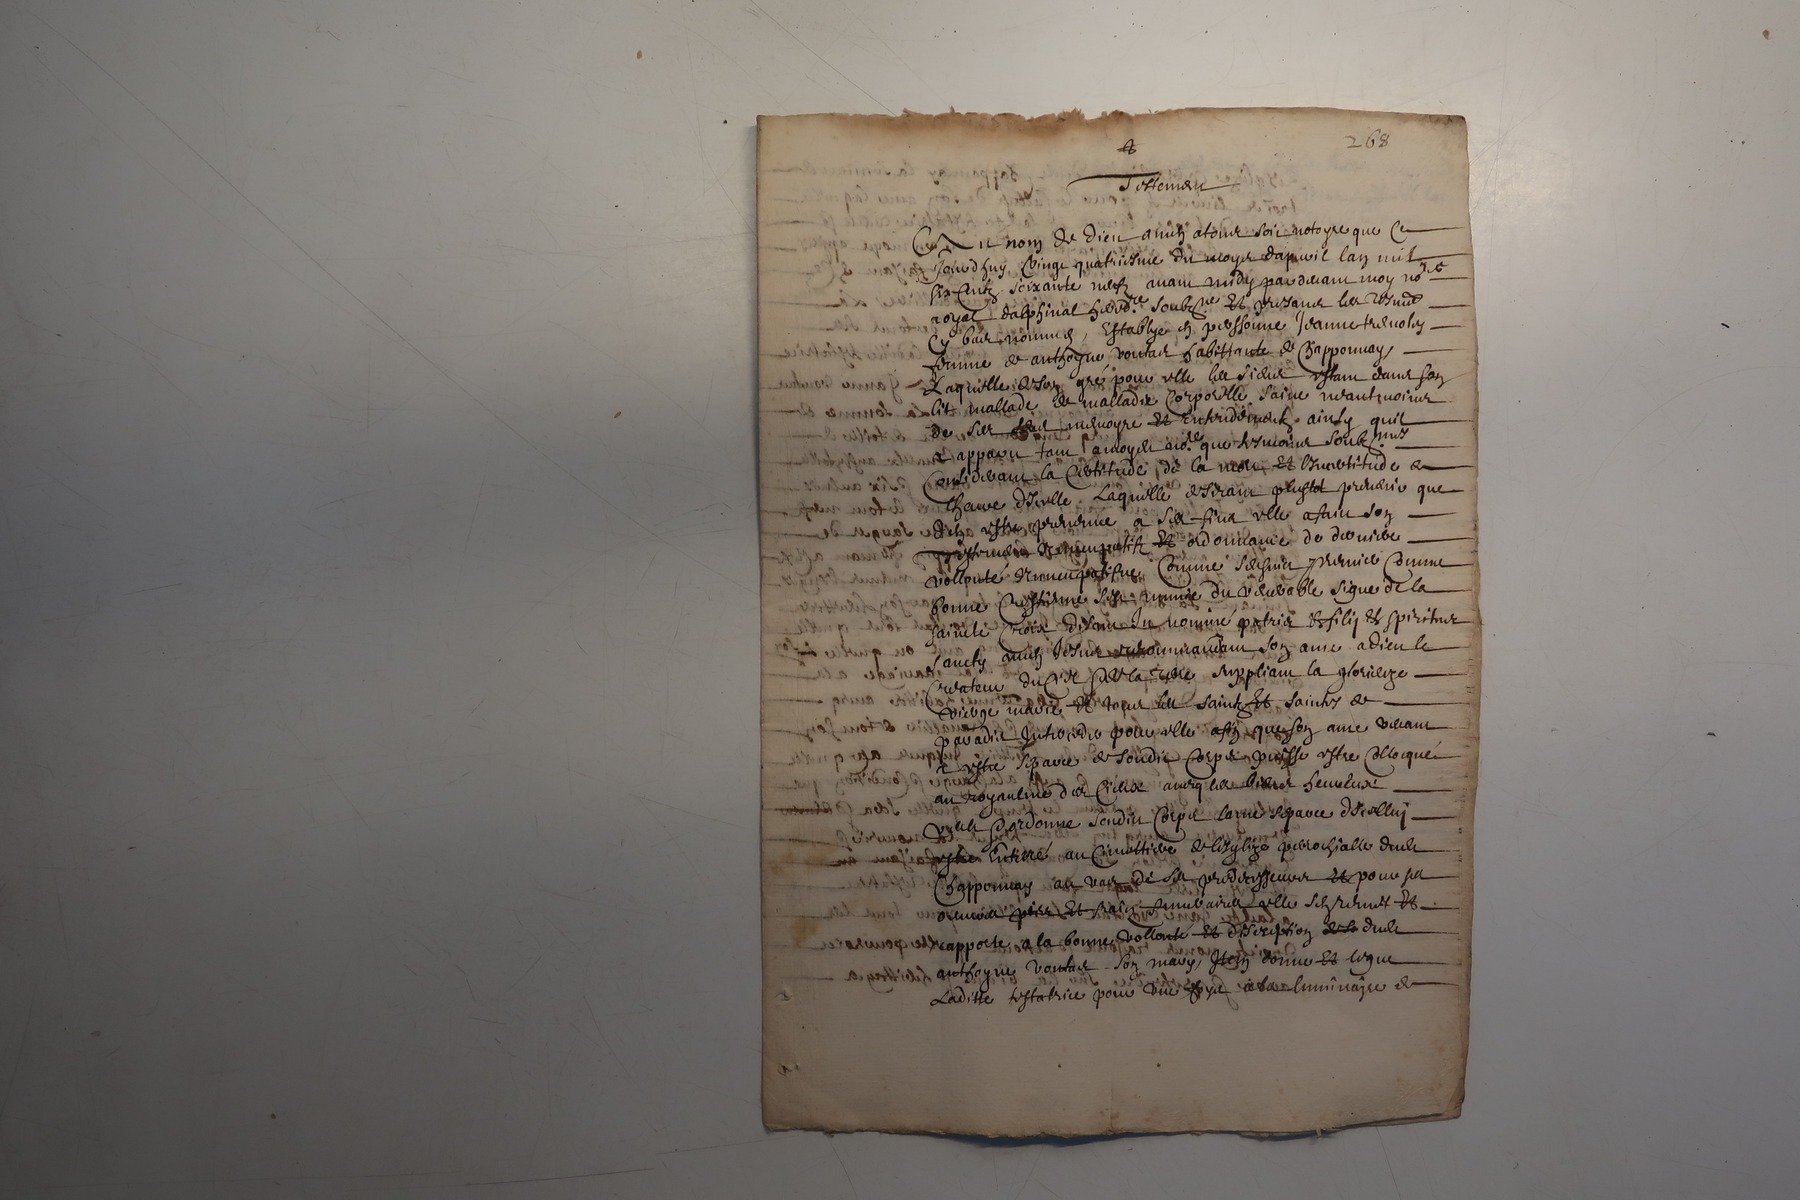 268
Testement
Au nom de dieu amen atous soit notoyre que Ce
Jourdhuy vingt quatriesme du moys dapvril lan mil
six Centz soixante neufz avant midy par devant moy no.re
royal dalphinal hered.re soubz.ne et presans les tesmo
Cy bas nommes, establye en personne Jeanne
femme de anthoyne voutas habittante de Chapponnay
Laquelle de son gre pour elle les siens estant dans son
lit mallade de malladie Corporelle saine neantmoins
de ses memoyre et entendement ainsy quil
a apparu tant a moyd no.re que tesmoins soubz.nes
Considerant la Certitude de la mort et lincertitude de
lheure dicelle Laquelle desirant plustot prevenir que
destre prevenue a ses fins elle a fait son
testement nuncupatif et ordonnance de derniere
vollonte nuncupative Comme sensuit premier Comme
bonne Crestienne sest munie du venerable signe de la
sainte Croix disant In nomine patris et filij et spiritus
sancty amen Jesus recommandant son ame a dieu le
Createur du Ciel et de la terre suppliant la glorieuze
vierge marie et tous les saintz et saintes de
paradis Interceder pour elle afin que son ame venant
a estre separee de sondit Corps puisse estre Collocquee
au royaulme des Cieux avecq les bien heureux
veult et ordonne sondit Corps lame separee dicelluy
estre Enterré au Cimettiere de lesglize parrochialle dud
Chapponnay au vas de ses predecesseurs et pour ses
oeuvres pies et frais funeraires elle sen remet et
rapporte a la bonne vollonte et discreption dud
anthoyne voutas son mary, Item donne et legue
Laditte testatrice pour une foys a la luminayre de